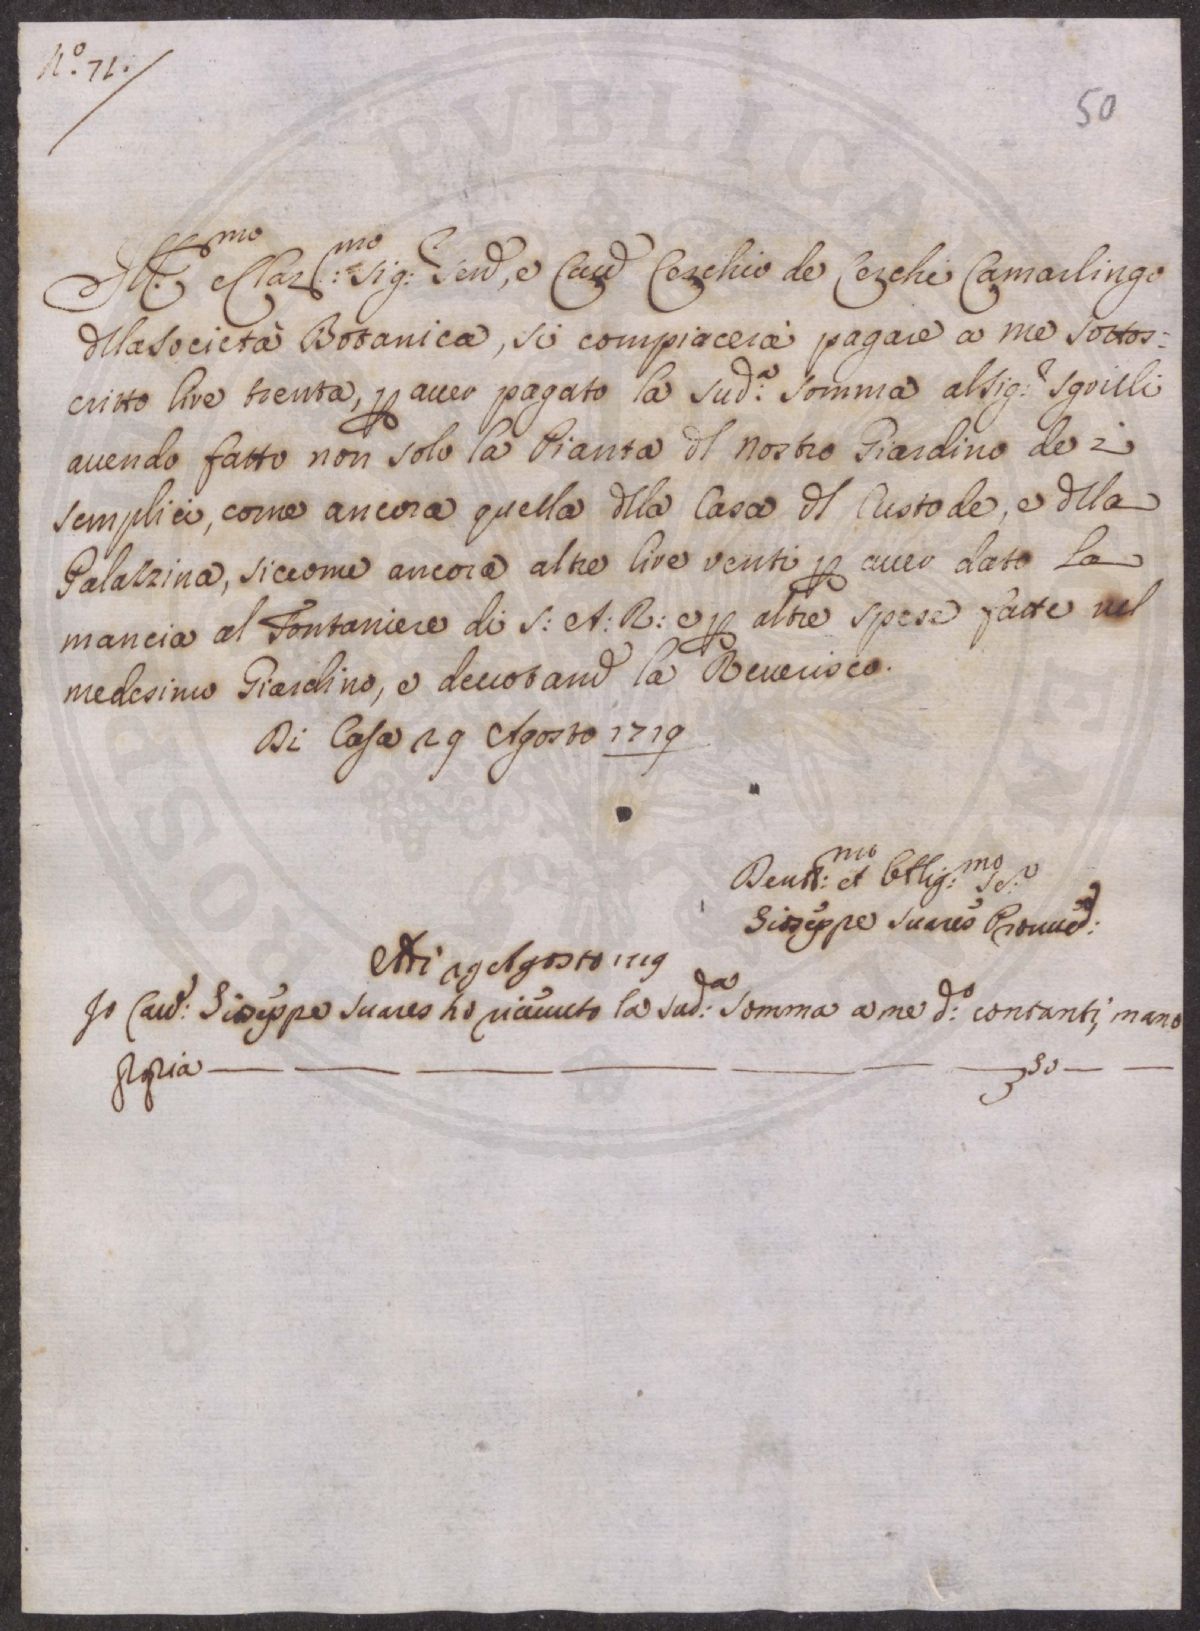 N.º 71.
50
Ill.mo e Clar.mo Sig.r Send, e Cavd Cerchio de Cerchi Camarlingo
dlla Società Botanica, si compiacerà pagare a me sottos=
critto lire trenta, p aver pagato la sud.a somma al Sig.r Sgrilli
avendo fatto non solo la Pianta dl nostro Giardino de i
semplici, come ancora quella dlla Casa dl Custode, e dlla
Palazzina, siccome ancora altre lire venti p aver dato la
mancia al Fontaniere di S: A: R: e p altre spese fatte nel
medesimo Giardino, e devotand la Reverisco.
Di Casa 29 Agosto 1719
Devt.mo et Obblig.mo Se.e
Gioseppe Suares Provved:
Adi 29 Agosto 1719
Io Cavr: Gioseppe Suares ho ricevuto la sud.a somma a me d.o contanti, mano
ppria — — — — — — — 50 — —
PVBLICA